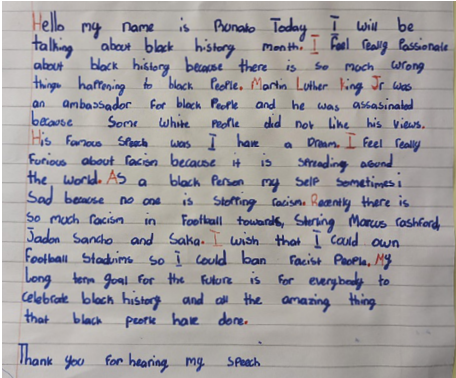 Hello my name is Renato Today I will be
talking about black history month. I Feel really Passionate
about black history because there is so much wrong
things happening to black People. Martin Luther King Jr was
an ambassador For black People and he was assasinated
because Some white people did not like his views.
His Famous Speech was I have a Dream. I Feel really
Furious about racism because it is spreading around
the world. As a black Person my self sometimes i
Sad because no one is Stopping racism. Recently there is
so much racism in Football towards, Sterling Marcus rashford,
Jadon Sancho and Saka. I wish that I Could own
Football Stadiums so I could ban racist People. My
long term goal For the Future is For everybody to
Celebrate black history and all the amazing thing
that black people have done.
Thank you For hearing my Speech